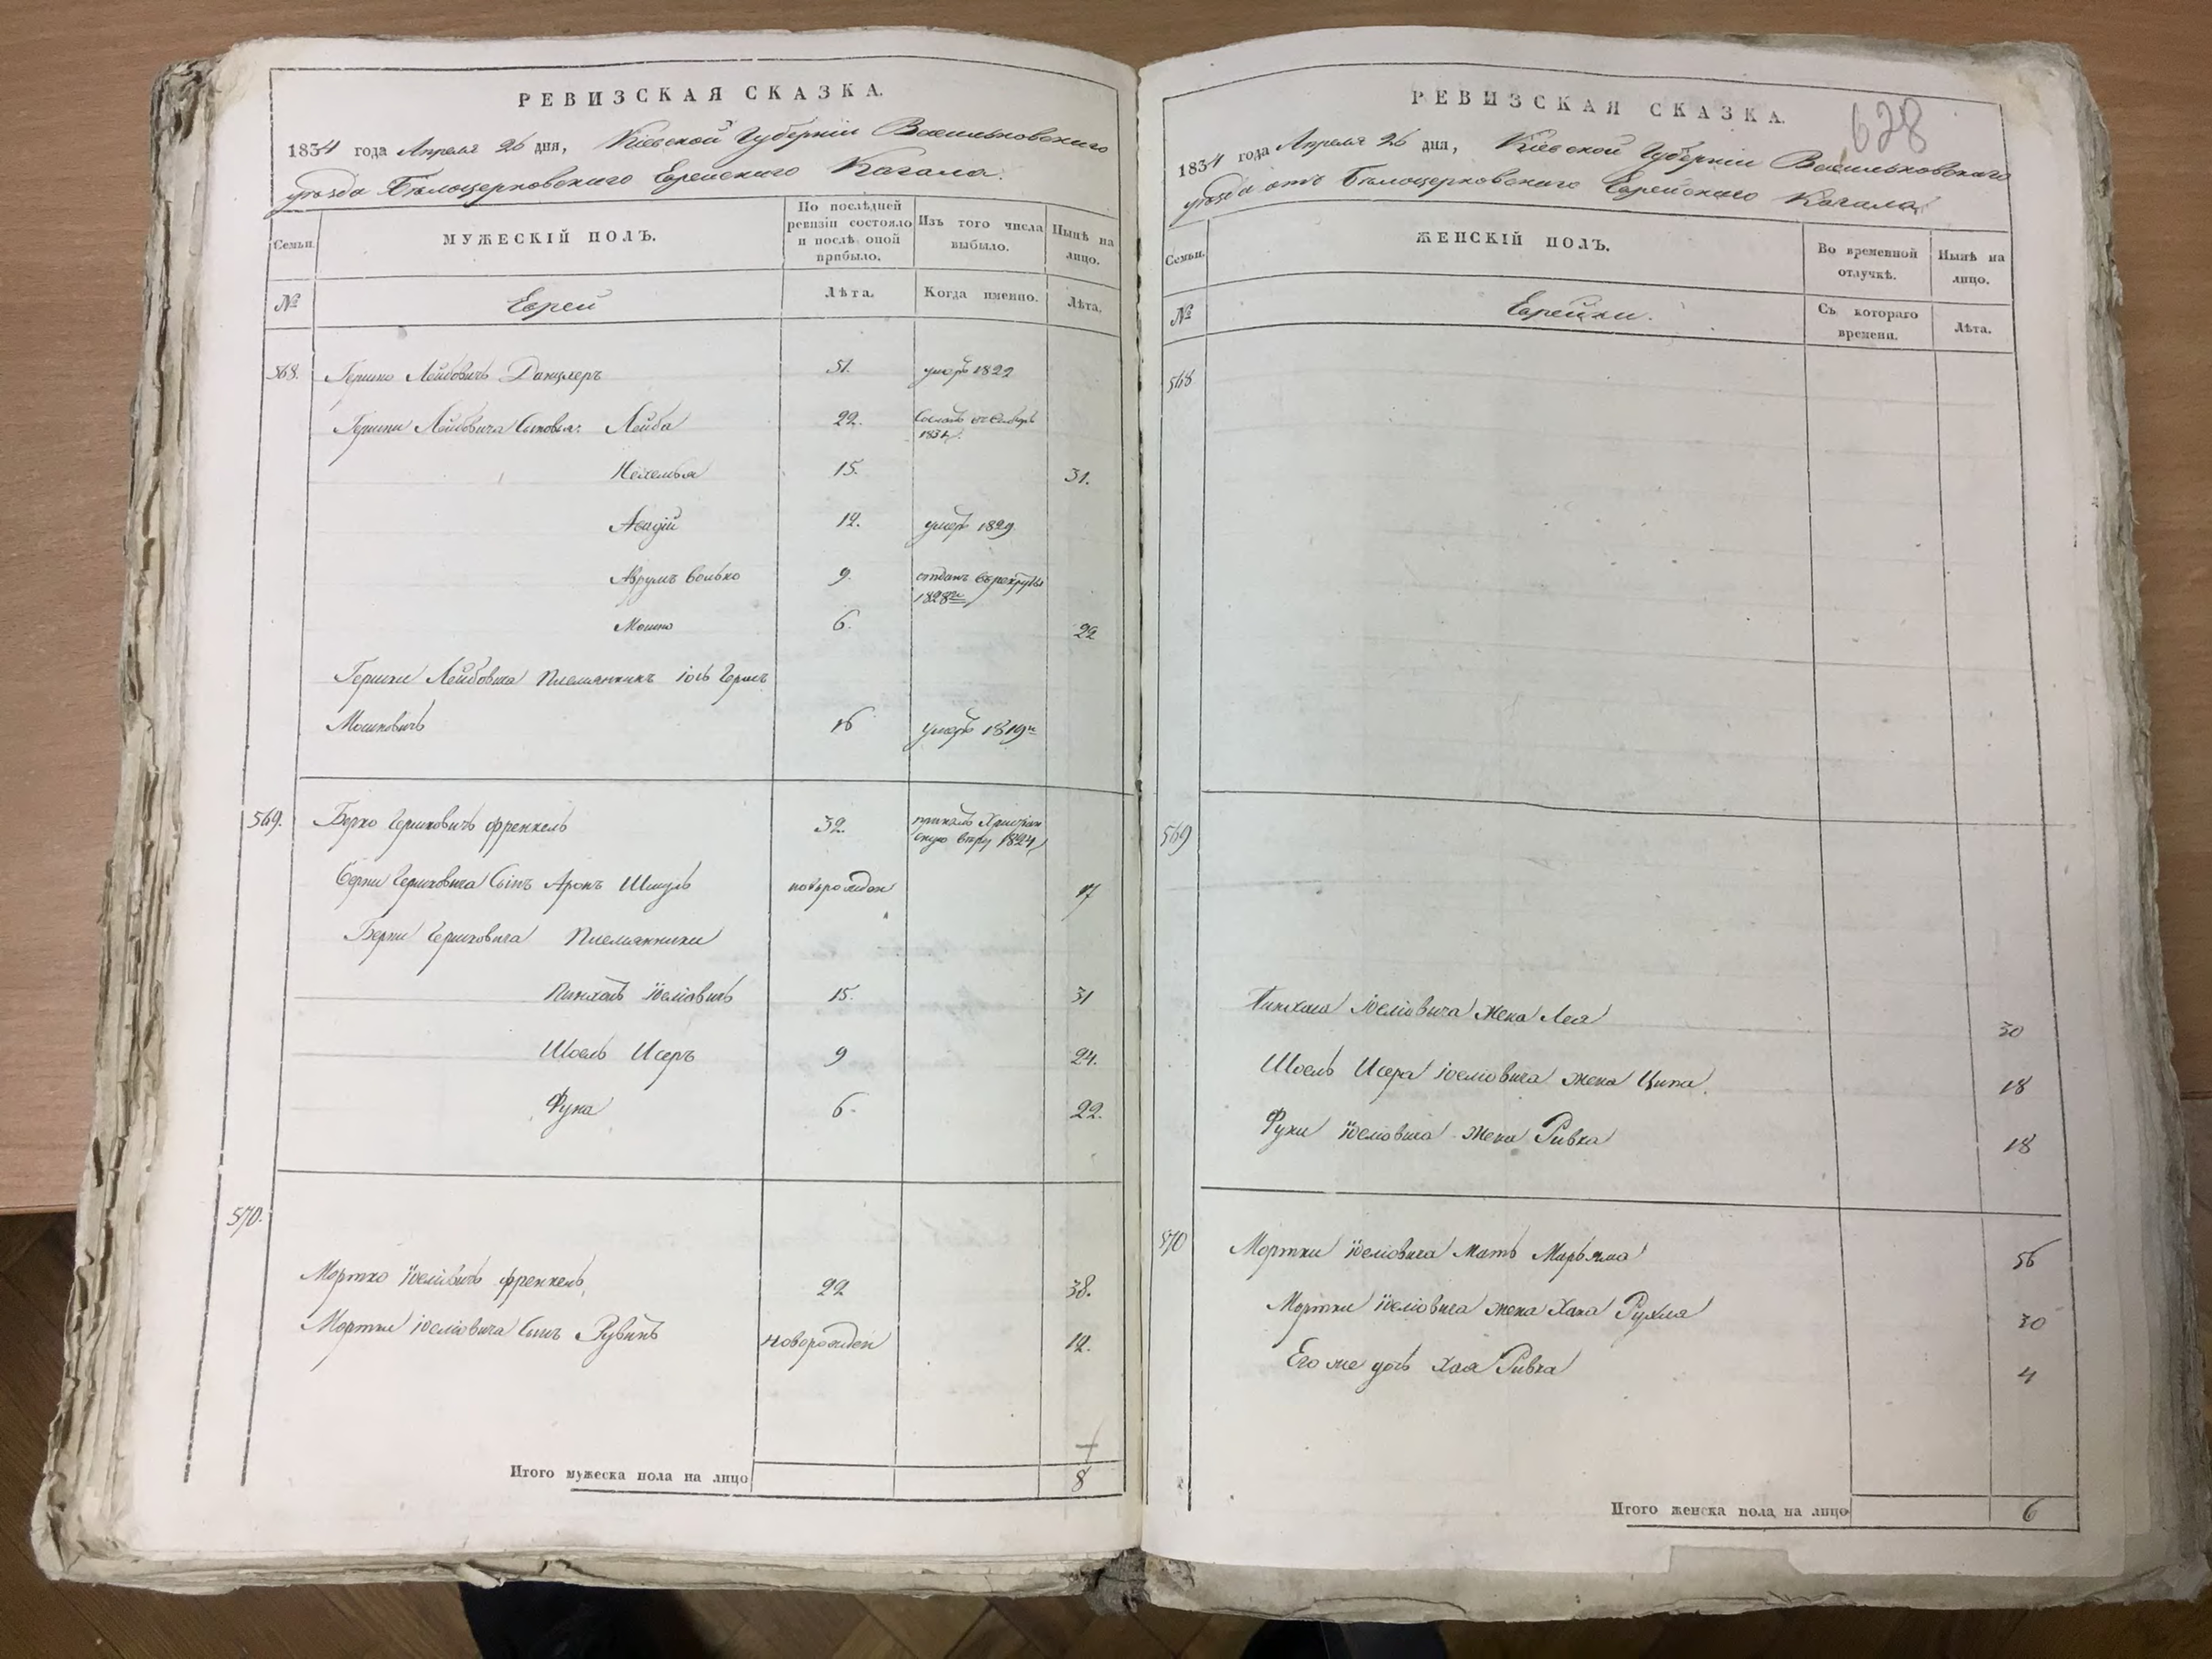 РЕВИЗСКАЯ СКАЗКА.
1834 года Апреля 26 дня, Кіевской Губерніи Васильковского
уезда Белоцерковского Еврейского Кагала.
Семьи.
МУЖЕСКІЙ ПОЛЪ.
По послѣдней ревизіи состояло и послѣ оной прибыло.
Изъ того числа выбыло.
Нынѣ на лицо.
№
Еврей
Лѣта.
Когда именно.
Лѣта.
568. Гершко Лейбовичъ 51. умеръ 1822
Гершки Лейбовича Сыновья: Лейба 22. 1834
Нехемья 15. 31.
Авадій 12. умеръ 1829
Аврумъ Волько 9. отданъ въ рекруты
1828го
Мошко 6. 22
Гершки Лейбовича племянникъ Іось Герш
Мошковичъ 16 умеръ 1819го
569. Берко Гершковичъ Френкель 32. принялъ Христіан
скую веру 1824
Берки Гершковича Сынъ Аронъ Шмуль новорожден 17
Берки Гершковича Племянники
Пинхасъ Іосіовичъ 15. 31
Шоель Исеръ 9 24.
Фука 6. 22.
570.
Мортко Іосіовичъ Френкель, 22 38.
Мортки Іосіовича сынъ Рувинъ новорожден 12.
Итого мужеска пола на лицо 8
РЕВИЗСКАЯ СКАЗКА.
628
1834 года Апреля 26 дня, Кіевской Губерніи Васильковского
уезда отъ Белоцерковского Еврейского Кагала
Семьи.
ЖЕНСКІЙ ПОЛЪ.
Во временной отлучкѣ.
Нынѣ на лицо.
№
Еврейки.
Съ котораго времени.
Лѣта.
568
569
Пинхаса Іосіовича жена Лея 30
Шоель Исера Іосіовича жена Ципа. 18
Фуки Іосіовича жена Ривка 18
570 Мортки Іосіовича Мать Марьяма 56
Мортки Іосіовича жена Хана Рухля 30
Его же дочь Хая Ривка 4
Итого женска пола на лицо 6